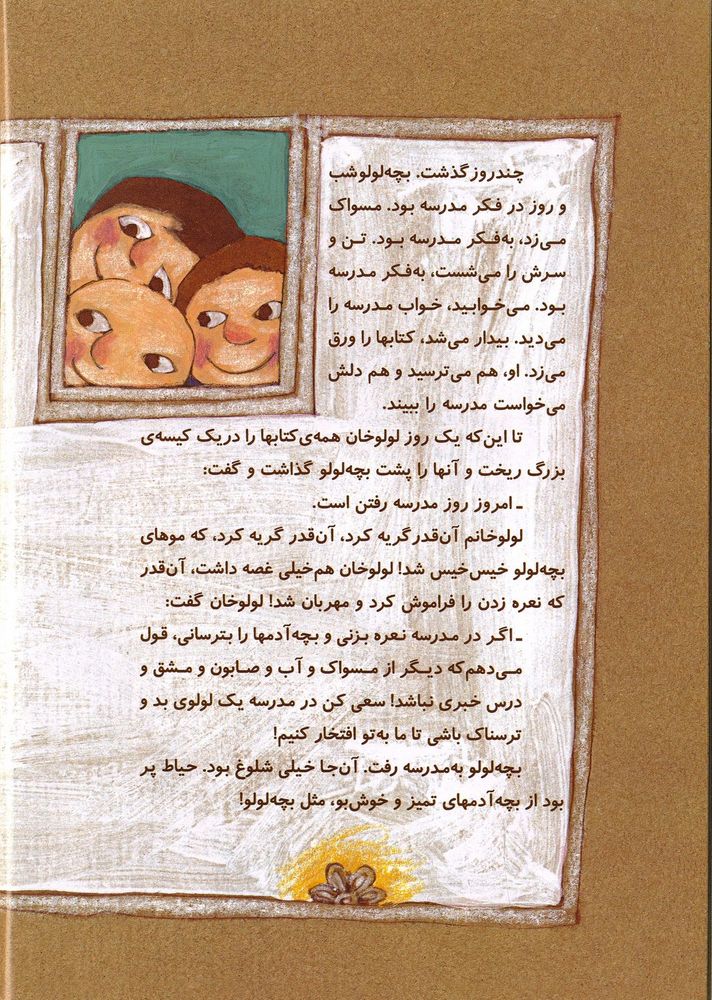 چند روز گذشت. بچه‌لولو شب
و روز در فکر مدرسه بود. مسواک
می‌زد، به‌فکر مدرسه بود. تن و
سرش را می‌شست، به‌فکر مدرسه
بود. می‌خوابید، خواب مدرسه را
می‌دید. بیدار می‌شد، کتابها را ورق
می‌زد. او، هم می‌ترسید و هم دلش
می‌خواست مدرسه را ببیند.
تا این‌که یک روز لولوخان همه‌ی کتابها را در یک کیسه‌ی
بزرگ ریخت و آنها را پشت بچه‌لولو گذاشت و گفت:
ـ امروز روز مدرسه رفتن است.
لولوخانم آن‌قدر گریه کرد، آن‌قدر گریه کرد، که موهای
بچه‌لولو خیس‌خیس شد! لولوخان هم خیلی غصه داشت، آن‌قدر
که نعره زدن را فراموش کرد و مهربان شد! لولوخان گفت:
ـ اگر در مدرسه نعره بزنی و بچه‌آدمها را بترسانی، قول
می‌دهم که دیگر از مسواک و آب و صابون و مشق و
درس خبری نباشد! سعی کن در مدرسه یک لولوی بد و
ترسناک باشی تا ما به‌تو افتخار کنیم!
بچه‌لولو به‌مدرسه رفت. آن‌جا خیلی شلوغ بود. حیاط پر
بود از بچه‌آدمهای تمیز و خوش‌بو، مثل بچه‌لولو!